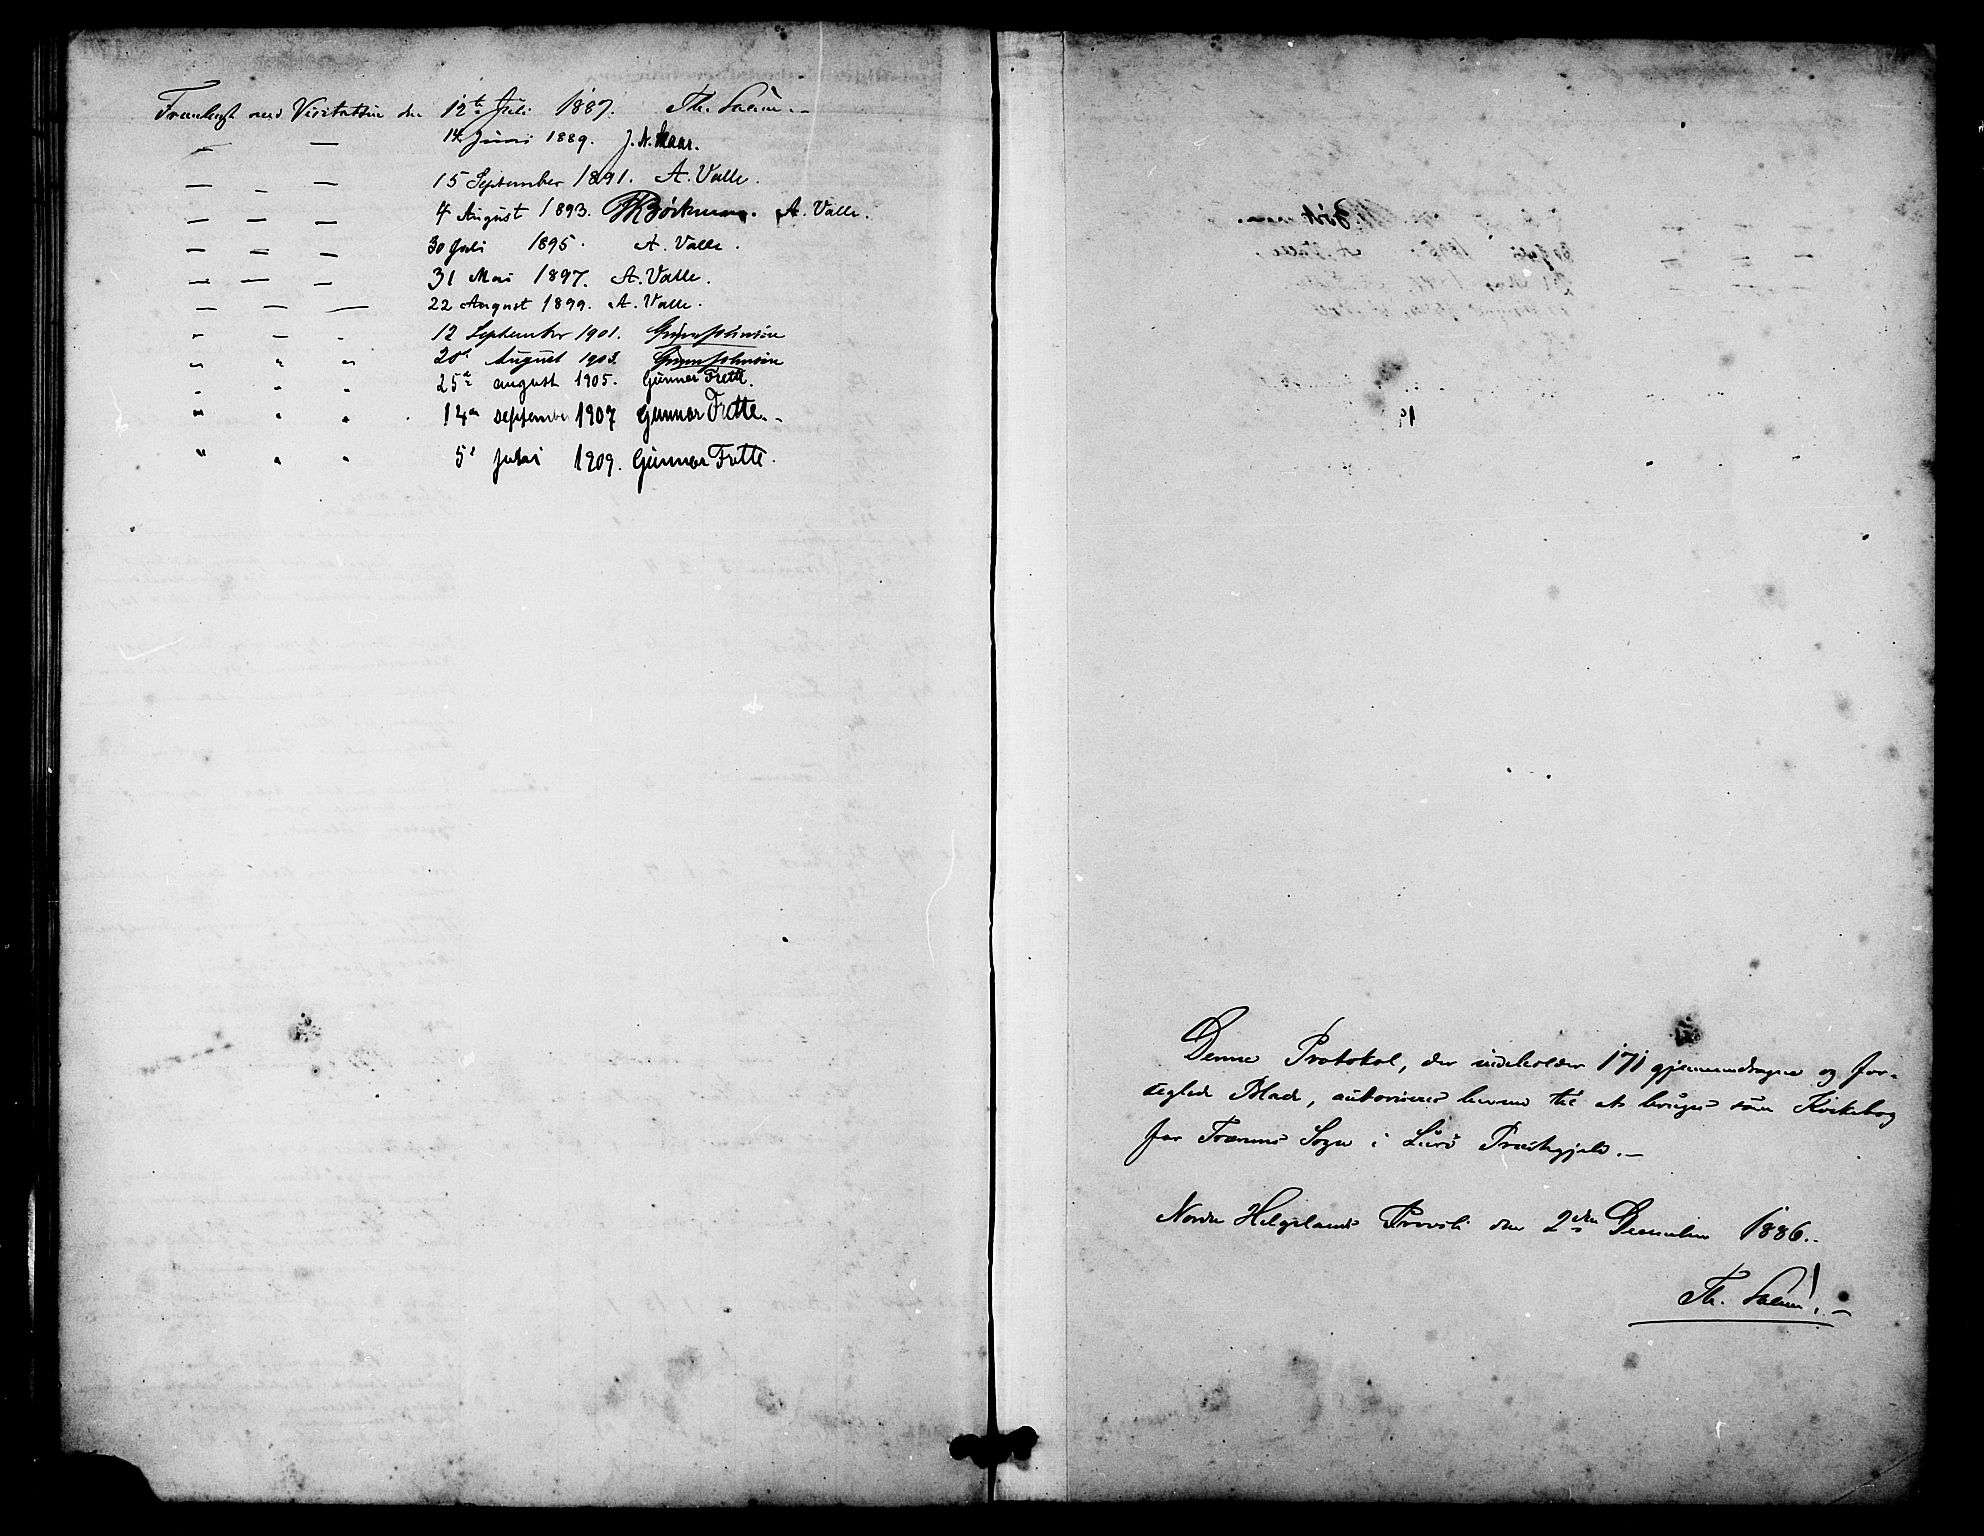 Fremlagt ved Visitatsen den 12te Juli 1887. Th.
— — 14 Juni 1889. J. N. Skaar.
— - — 15 September 1891. A. Valle.
— — — 4 August 1893. Björkman. A. Valle.
— — — 30 Juli 1895. A. Valle.
— — — 31 Mai 1897. A. Valle.
— — — 22 August 1899. A. Valle.
- — - 12 September 1901.
" " " August 1903.
" " " 25de august 1905. Gunnar Frette.
" " " 14de september 1907 Gunnar Frette.-
" " " 5te 1909. Gunnar Frette.
Denne Protokol, der indeholder 171 gjennemdragne og for-
seglede Blade, autoriseres herved til at bruges som Kirkebog
for Trænens Sogn i Lurö Præstegjeld.—
Nordre Helgelands Provsti den 2den December 1886.
Th.